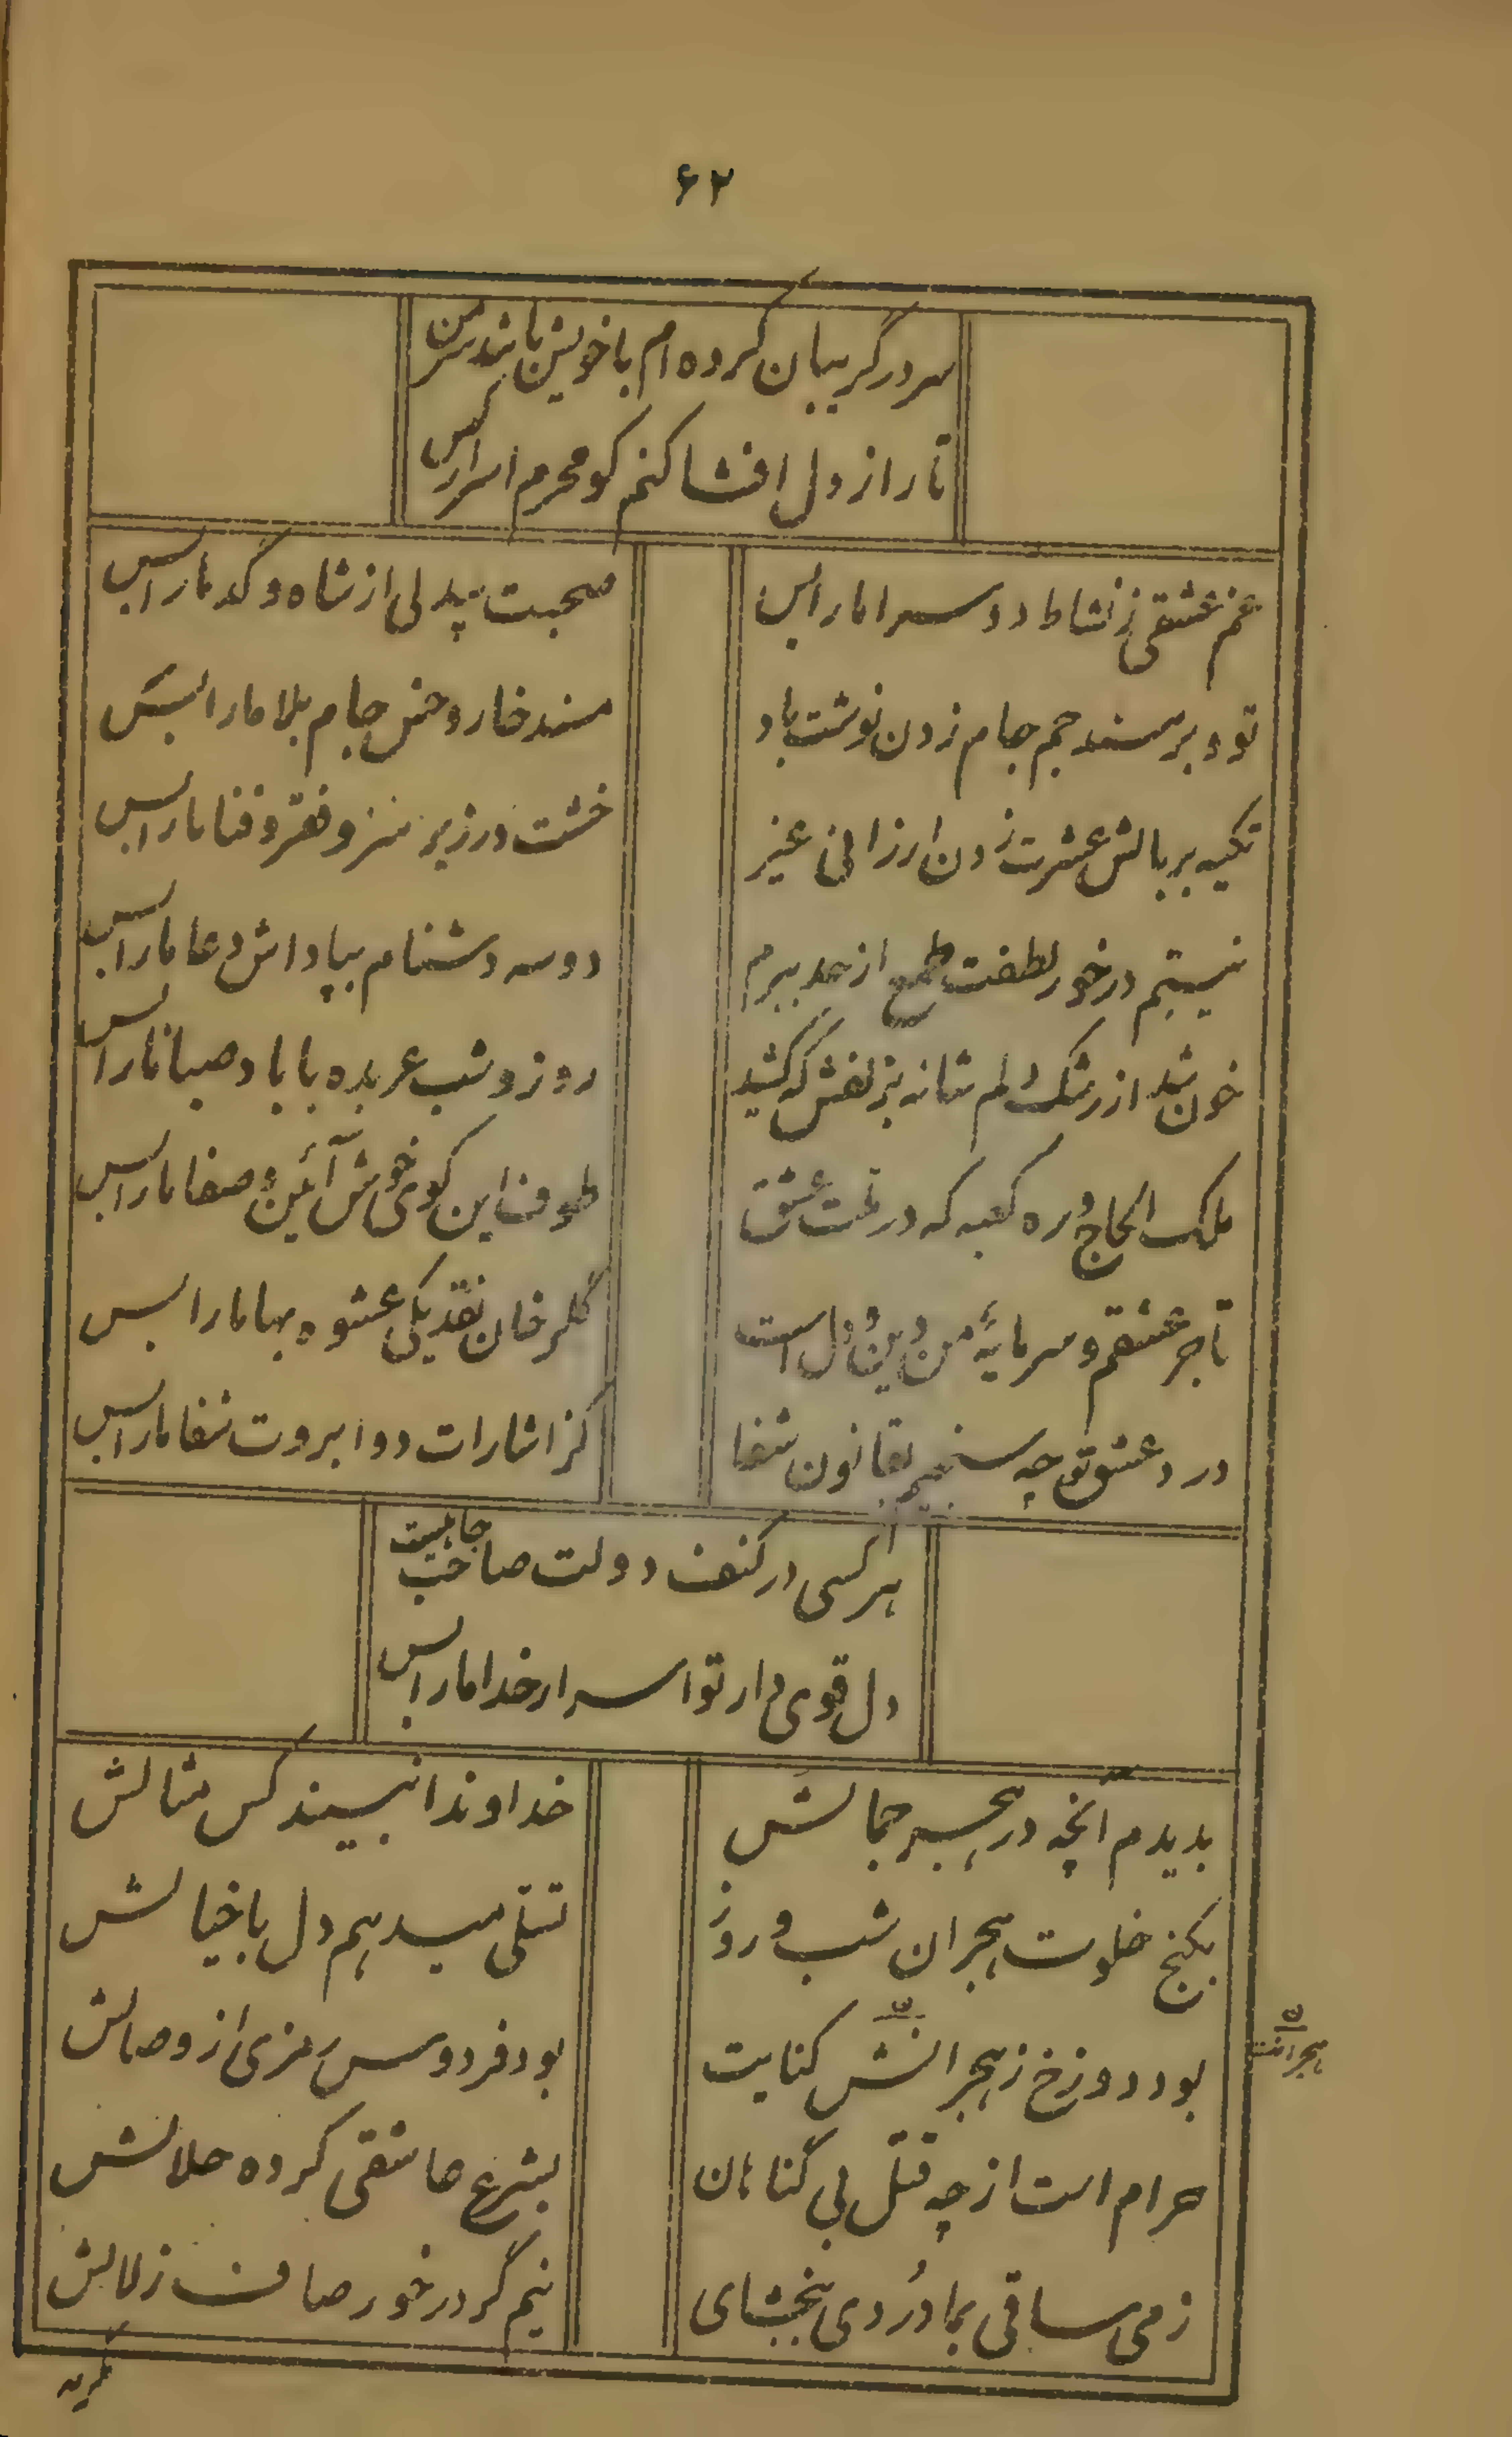 ۶۲
سر در گریبان کرده ام با خویش باشد سر من
تا راز دل افشا کنم کو محرم اسرار کس
غم عشقی ز نشاط دو سرا ما را بس
صحبت بیدلی از شاه و گدا ما را بس
تو و بر مسند جم جام زدن نوشت باد
مسند خار و خس جام بلا ما را بس
تکیه بر بالش عشرت زدن ارزانی غیر
خشت در زیر سر و فقر و فنا ما را بس
نیستم در خور لطفت طمع از حد ببرم
دو سه دشنام بپاداش دعا ما را بس
خون شد از رشک دلم شانه بزلفش که کشید
روز و شب عربده با باد صبا ما را بس
ملک الحاج و ره کعبه که در ملت عشق
طوف این کوی خوش آئین و صفا ما را بس
تاجر عشقم و سرمایهٔ من دین و دل است
گلرخان نقد یکی عشوه بها ما را بس
درد عشق تو چه سنجیم بقانون شفا
کز اشارات دو ابروت شفا ما را بس
هر کسی در کنف دولت صاحب جاهیست
دل قوی دار تو اسرار خدا ما را بس
بدیدم آنچه در هجر جمالش
خداوندا نبیند کس مثالش
بکنج خلوت هجران شب و روز
تسلی میدهم دل با خیالش
بود دوزخ ز هجرانش کنایت
بود فردوس رمزی از وصالش
هجرانت
حرام است از چه قتل بی گناهان
بشرع عاشقی کرده حلالش
ز می ساقی بما دُردی ببخشای
نیم گر در خور صاف زلالش